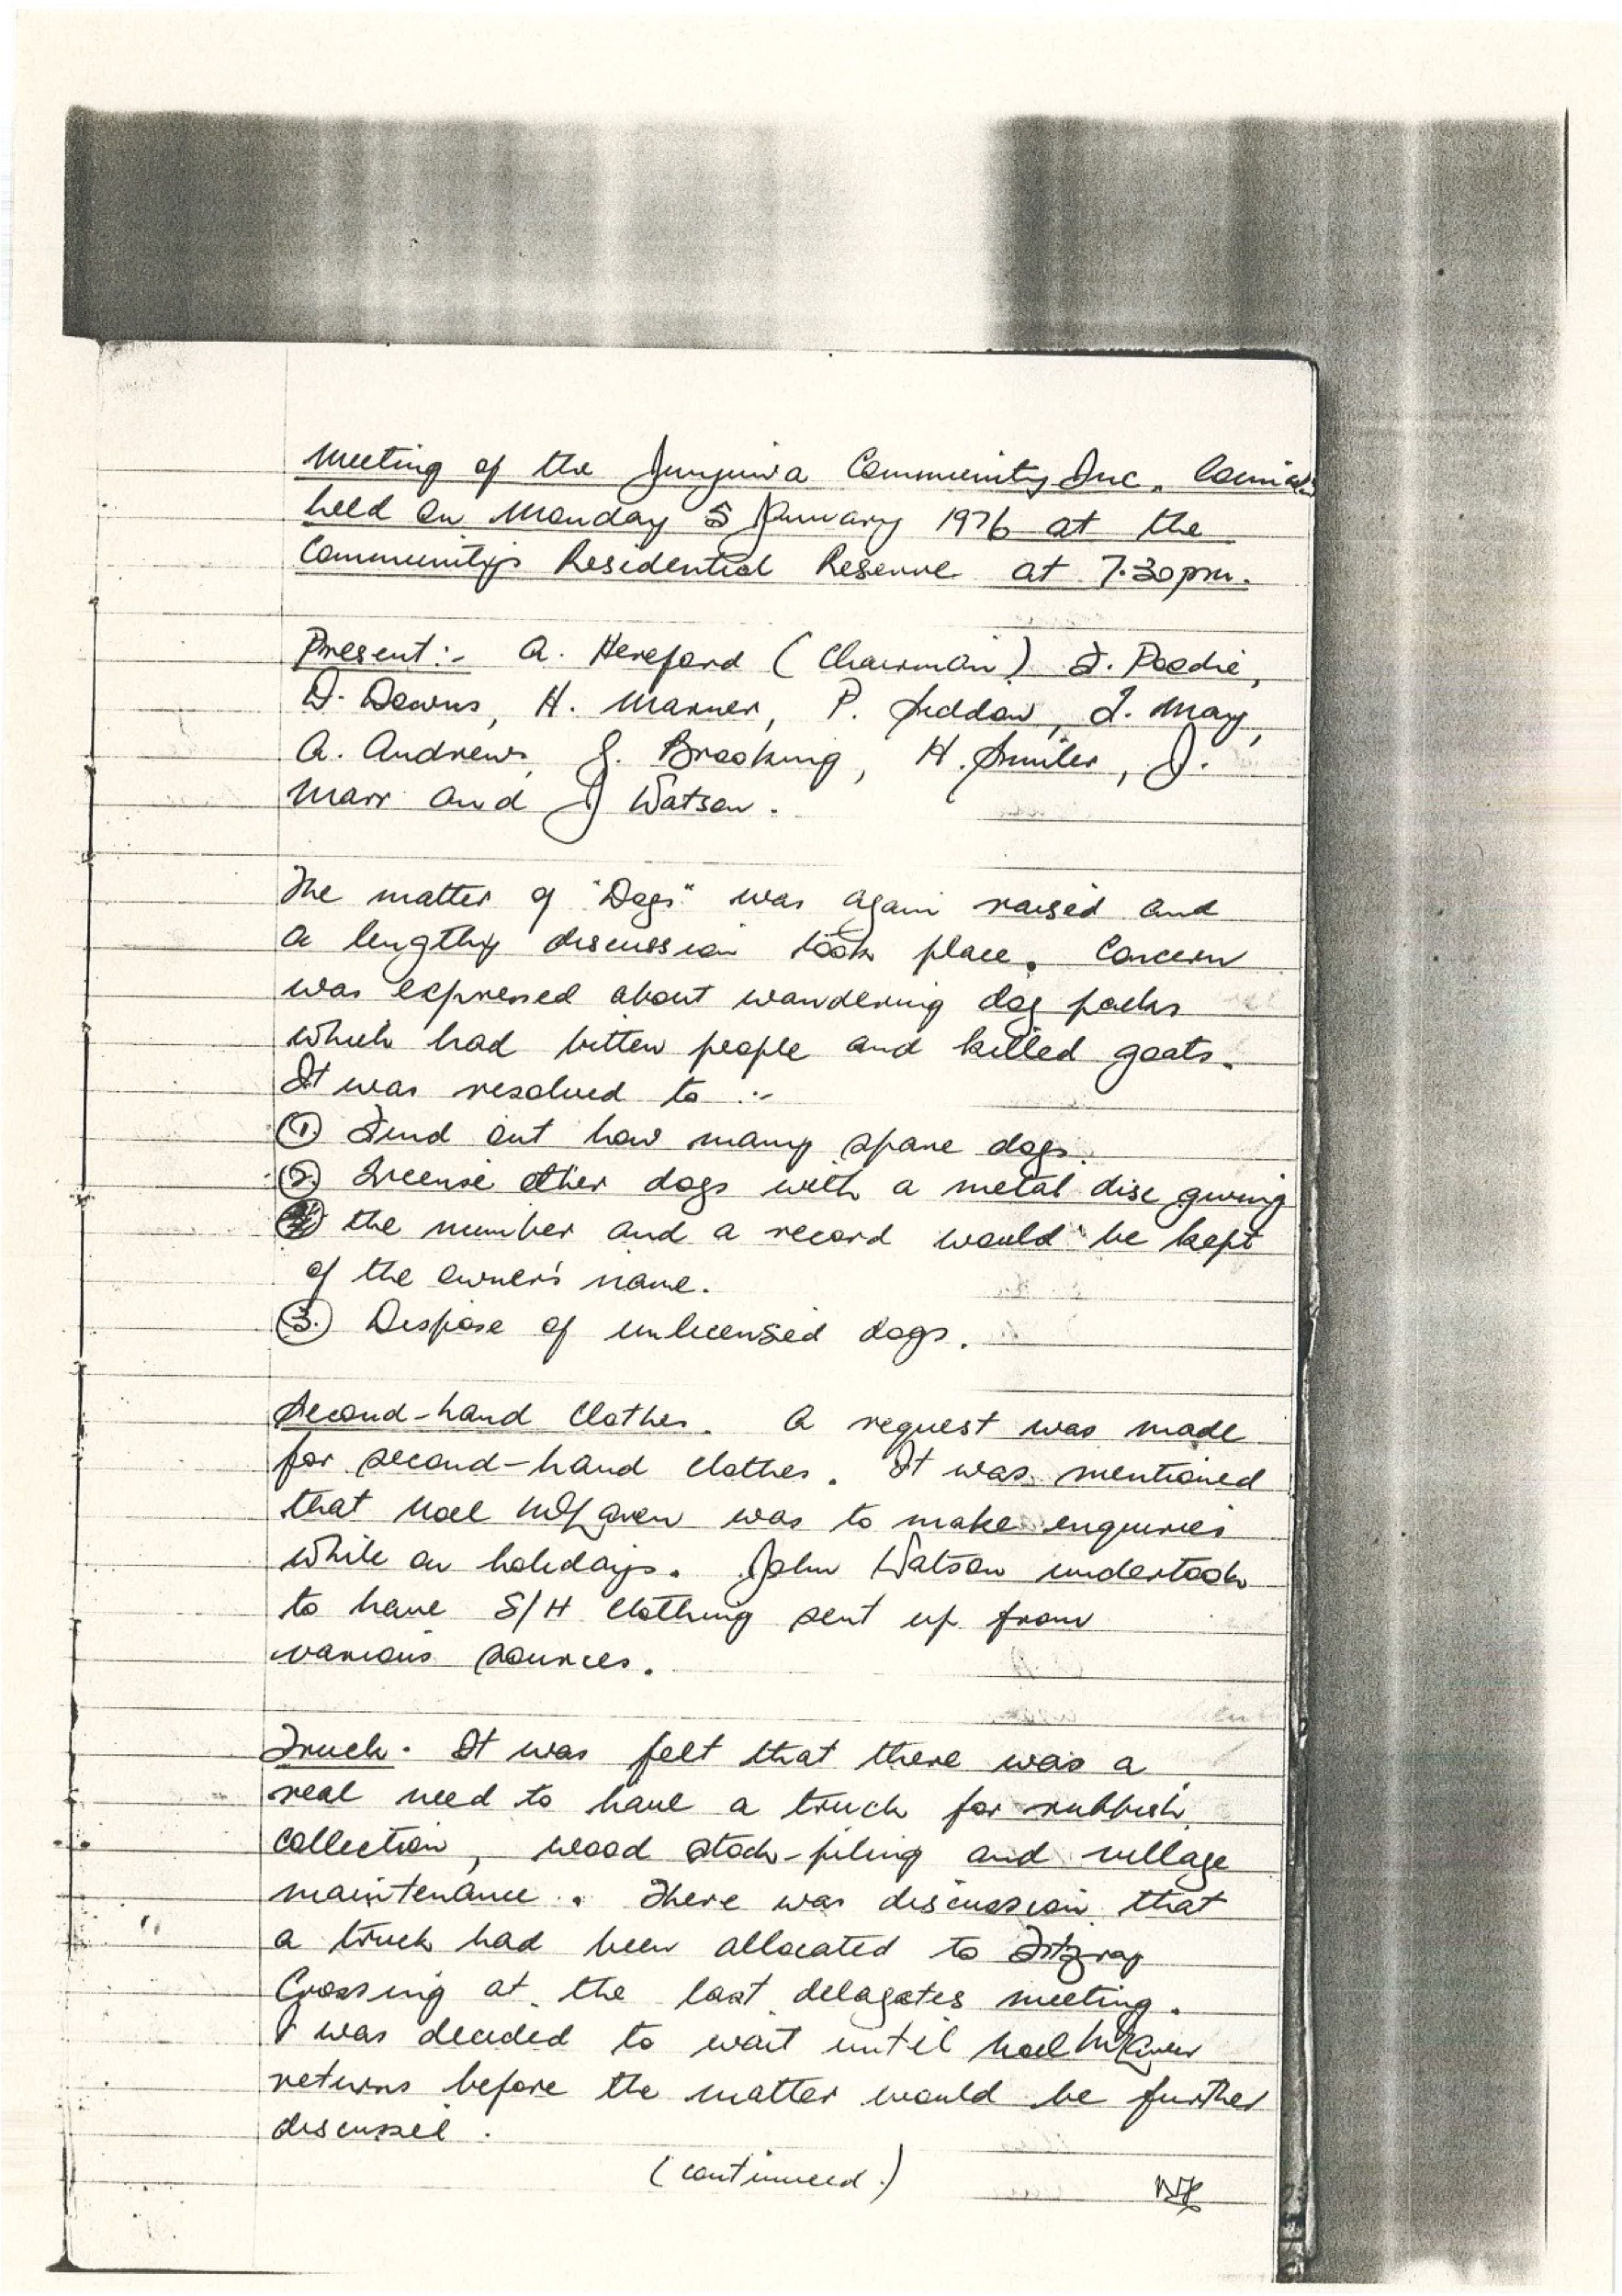 Meeting of the Junjuwa Community Inc.
held on Monday 5 January 1976 at the
Community's Residential Reserve at 7.30pm.
Present:- A. Hereford (Chairman) T. Poodie,
D. Downs, H. Marner, P. Seddon, I. May,
A. Andrews, J. Brooking, H. Smiler, J.
Marr and J Watson.
The matter of "Dogs" was again raised and
a lengthy discussion took place. Concern
was expressed about wandering dog packs
which had bitten people and killed goats.
It was resolved to :-
1. Find out how many spare dogs.
2. License other dogs with a metal disc giving
the number and a record would be kept
of the owner's name.
3. Dispose of unlicensed dogs.
Second-hand Clothes. A request was made
for second-hand clothes. It was mentioned
that Noel was to make enquiries
while on holidays. John Watson undertook
to have S/H Clothing sent up from
various sources.
Truck. It was felt that there was a
real need to have a truck for rubbish
collection, wood stock-piling and village
maintenance. There was discussion that
a truck had been allocated to Fitzroy
Crossing at the last delagates meeting.
was decided to wait until Noel
returns before the matter would be further
discussed.
(continued.)